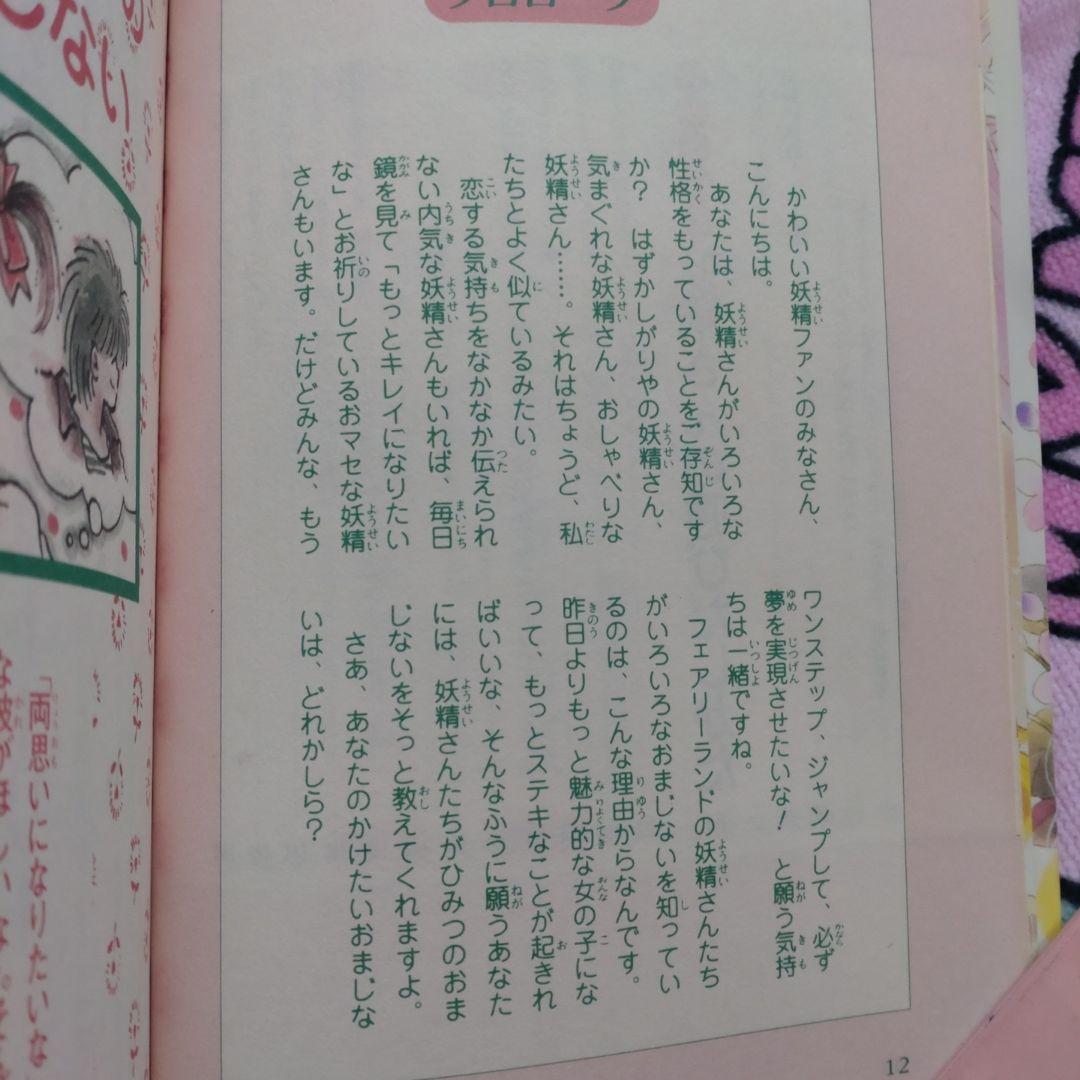 プロローグ
かわいい妖精ファンのみなさん、
こんにちは。
あなたは、妖精さんがいろいろな
性格をもっていることをご存知です
か？　はずかしがりやの妖精さん、
気まぐれな妖精さん、おしゃべりな
妖精さん……。それはちょうど、私
たちとよく似ているみたい。
恋する気持ちをなかなか伝えられ
ない内気な妖精さんもいれば、毎日
鏡を見て「もっとキレイになりたい
な」とお祈りしているおマセな妖精
さんもいます。だけどみんな、もう
ワンステップ、ジャンプして、必ず
夢を実現させたいな！　と願う気持
ちは一緒ですね。
フェアリーランドの妖精さんたち
がいろいろなおまじないを知ってい
るのは、こんな理由からなんです。
昨日よりもっと魅力的な女の子にな
って、もっとステキなことが起きれ
ばいいな、そんなふうに願うあなた
には、妖精さんたちがひみつのおま
じないをそっと教えてくれますよ。
さあ、あなたのかけたいおまじな
いは、どれかしら？
12
「両思いになりたいな
な彼がほしいな